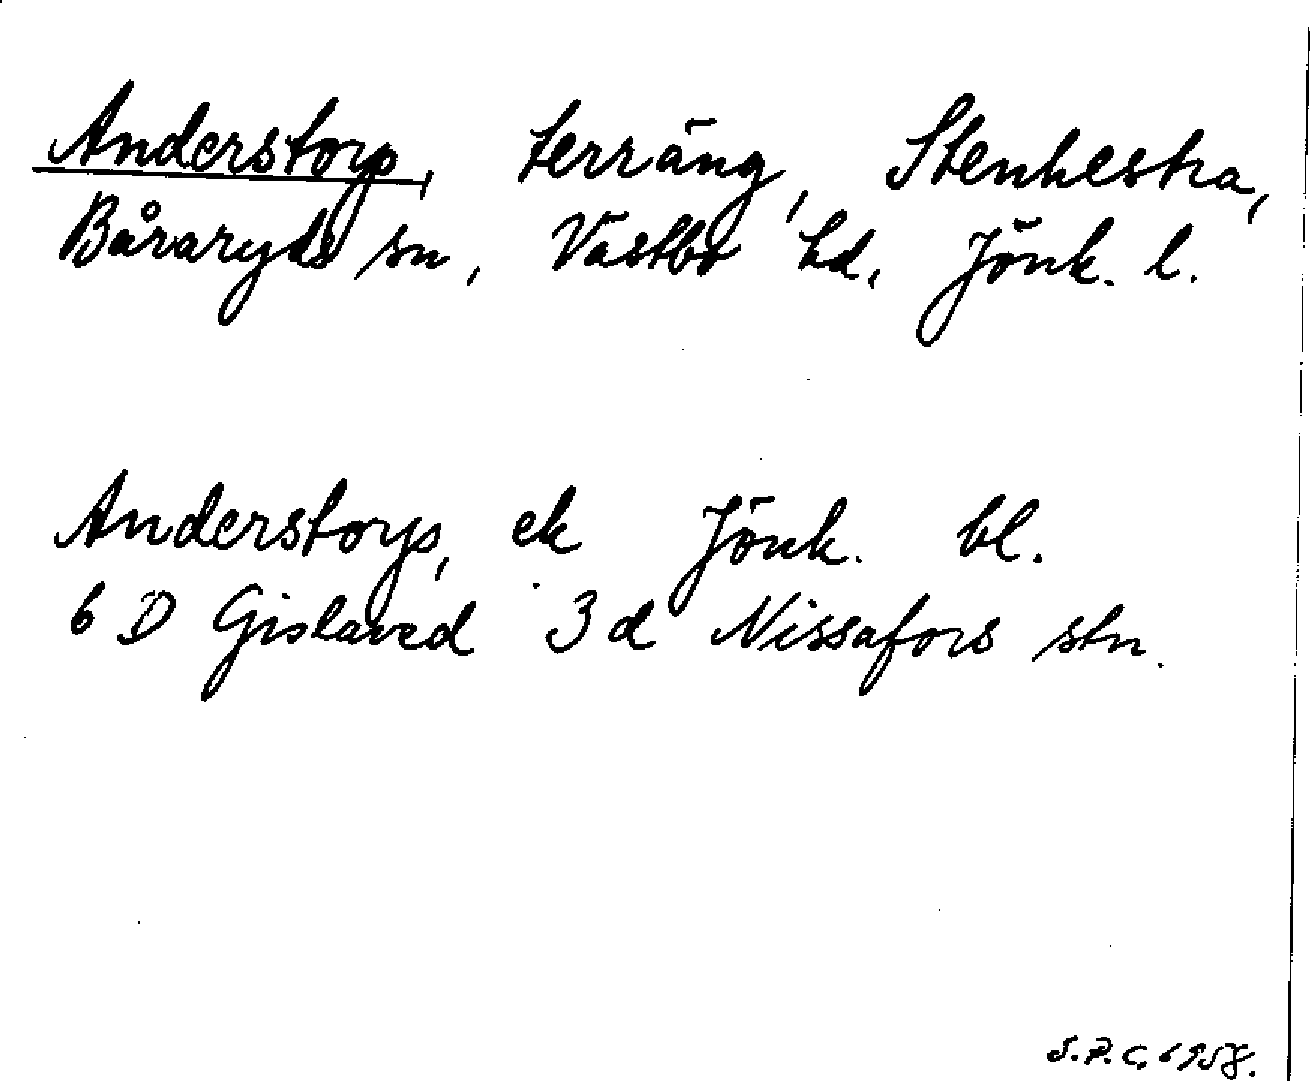 Anderstorp, terräng, Stenhestra,
Båraryds sn, Västbo hd, Jönk. l.
Anderstorp, ek Jönk. bl.
6 D Gislaved 3 d Nissafors stn.
1958.